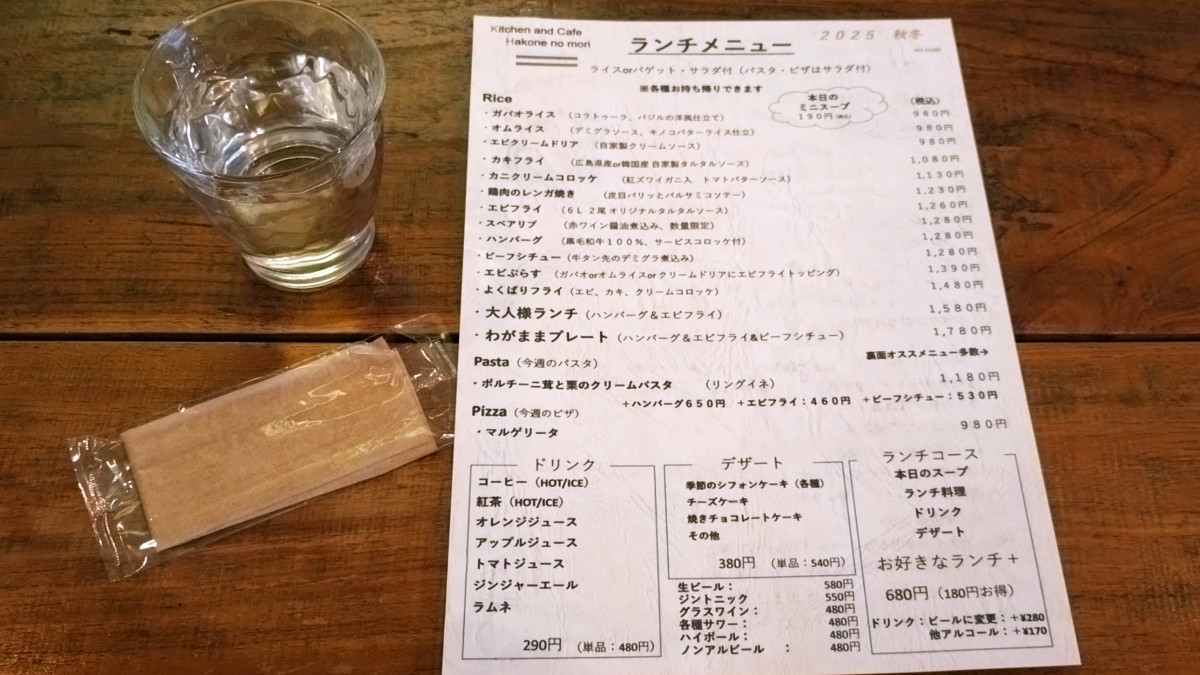 Kitchen and Cafe
Hakone no mori
ランチメニュー
2025 秋冬
ライスorバゲット・サラダ付(パスタ・ピザはサラダ付)
※各種お持ち帰りできます
本日の
ミニスープ
190円(税込)
Rice
(税込)
・ガパオライス (コラトゥーラ、バジルの洋風仕立て) 980円
・オムライス (デミグラソース、キノコバターライス仕立) 980円
・エビクリームドリア (自家製クリームソース) 980円
・カキフライ (広島県産or韓国産 自家製タルタルソース) 1,080円
・カニクリームコロッケ (紅ズワイガニ入 トマトバターソース) 1,130円
・鶏肉のレンガ焼き (皮目パリッとバルサミコソテー) 1,230円
・エビフライ (6L 2尾 オリジナルタルタルソース) 1,260円
・スペアリブ (赤ワイン醤油煮込み、数量限定) 1,280円
・ハンバーグ (黒毛和牛100%、サービスコロッケ付) 1,280円
・ビーフシチュー(牛タン先のデミグラ煮込み) 1,280円
・エビぷらす (ガパオorオムライスorクリームドリアにエビフライトッピング) 1,390円
・よくばりフライ(エビ、カキ、クリームコロッケ) 1,480円
・大人様ランチ(ハンバーグ&エビフライ) 1,580円
・わがままプレート(ハンバーグ&エビフライ&ビーフシチュー) 1,780円
Pasta(今週のパスタ)
裏面オススメメニュー多数→
・ポルチーニ茸と栗のクリームパスタ (リングイネ) 1,180円
+ハンバーグ650円 +エビフライ:460円 +ビーフシチュー:530円
Pizza(今週のピザ)
・マルゲリータ 980円
ドリンク
コーヒー(HOT/ICE)
紅茶(HOT/ICE)
オレンジジュース
アップルジュース
トマトジュース
ジンジャーエール
ラムネ
290円 (単品:480円)
デザート
季節のシフォンケーキ(各種)
チーズケーキ
焼きチョコレートケーキ
その他
380円 (単品:540円)
生ビール: 580円
ジントニック 550円
グラスワイン: 480円
各種サワー: 480円
ハイボール: 480円
ノンアルビール : 480円
ランチコース
本日のスープ
ランチ料理
ドリンク
デザート
お好きなランチ+
680円(180円お得)
ドリンク:ビールに変更:+¥280
他アルコール:+¥170